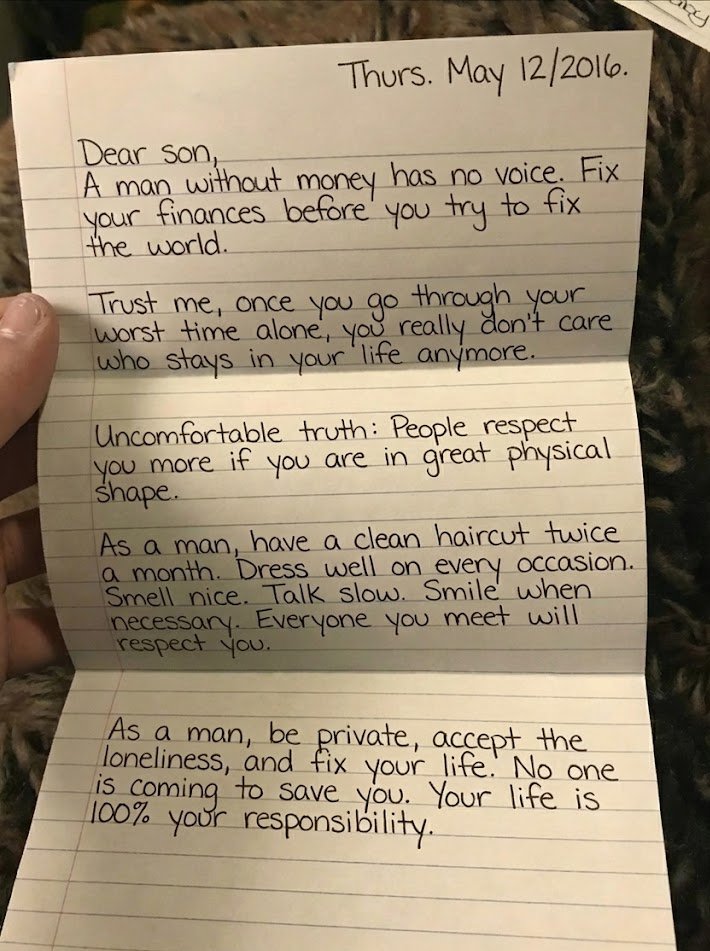 Thurs. May 12/2016.
Dear son,
A man without money has no voice. Fix
your finances before you try to fix
the world.
Trust me, once you go through your
worst time alone, you really don't care
who stays in your life anymore.
Uncomfortable truth: People respect
you more if you are in great physical
shape.
As a man, have a clean haircut twice
a month. Dress well on every occasion.
Smell nice. Talk slow. Smile when
necessary. Everyone you meet will
respect you.
As a man, be private, accept the
loneliness, and fix your life. No one
is coming to save you. Your life is
100% your responsibility.